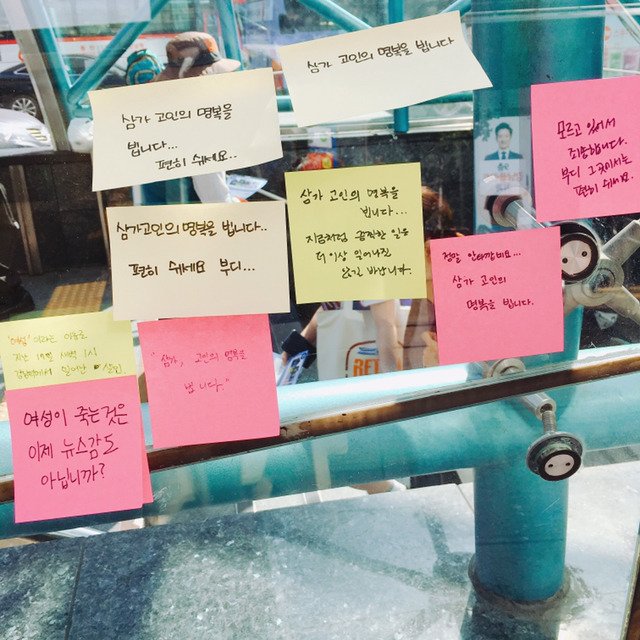 삼가 고인의 명복을 빕니다
삼가 고인의 명복을
빕니다...
편히 쉬세요..
모르고 있어서
죄송합니다.
부디 그곳에서는
편히 쉬세요.
삼가 고인의 명복을
빕니다...
지금처럼 끔찍한 일은
더이상 일어나질
않길 바랍니다.
삼가고인의 명복을 빕니다..
편히 쉬세요 부디...
정말 안타깝네요...
삼가 고인의
명복을 빕니다.
"여성" 이라는 이유로
지난 17일 새벽 1시
강남역에서 일어난
"삼가, 고인의 명복을
빕니다."
여성이 죽는것은
이제 뉴스감도
아닙니까?